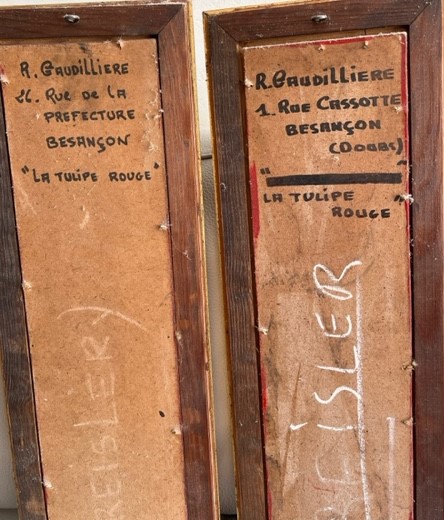 R. GAUDILLIERE
26. RUE DE LA
PREFECTURE
BESANÇON
"LA TULIPE ROUGE"
REISLERY
R. GAUDILLIERE
1. RUE CASSOTTE
BESANÇON
(DOUBS)
"
"
LA TULIPE
ROUGE"
BEISLER